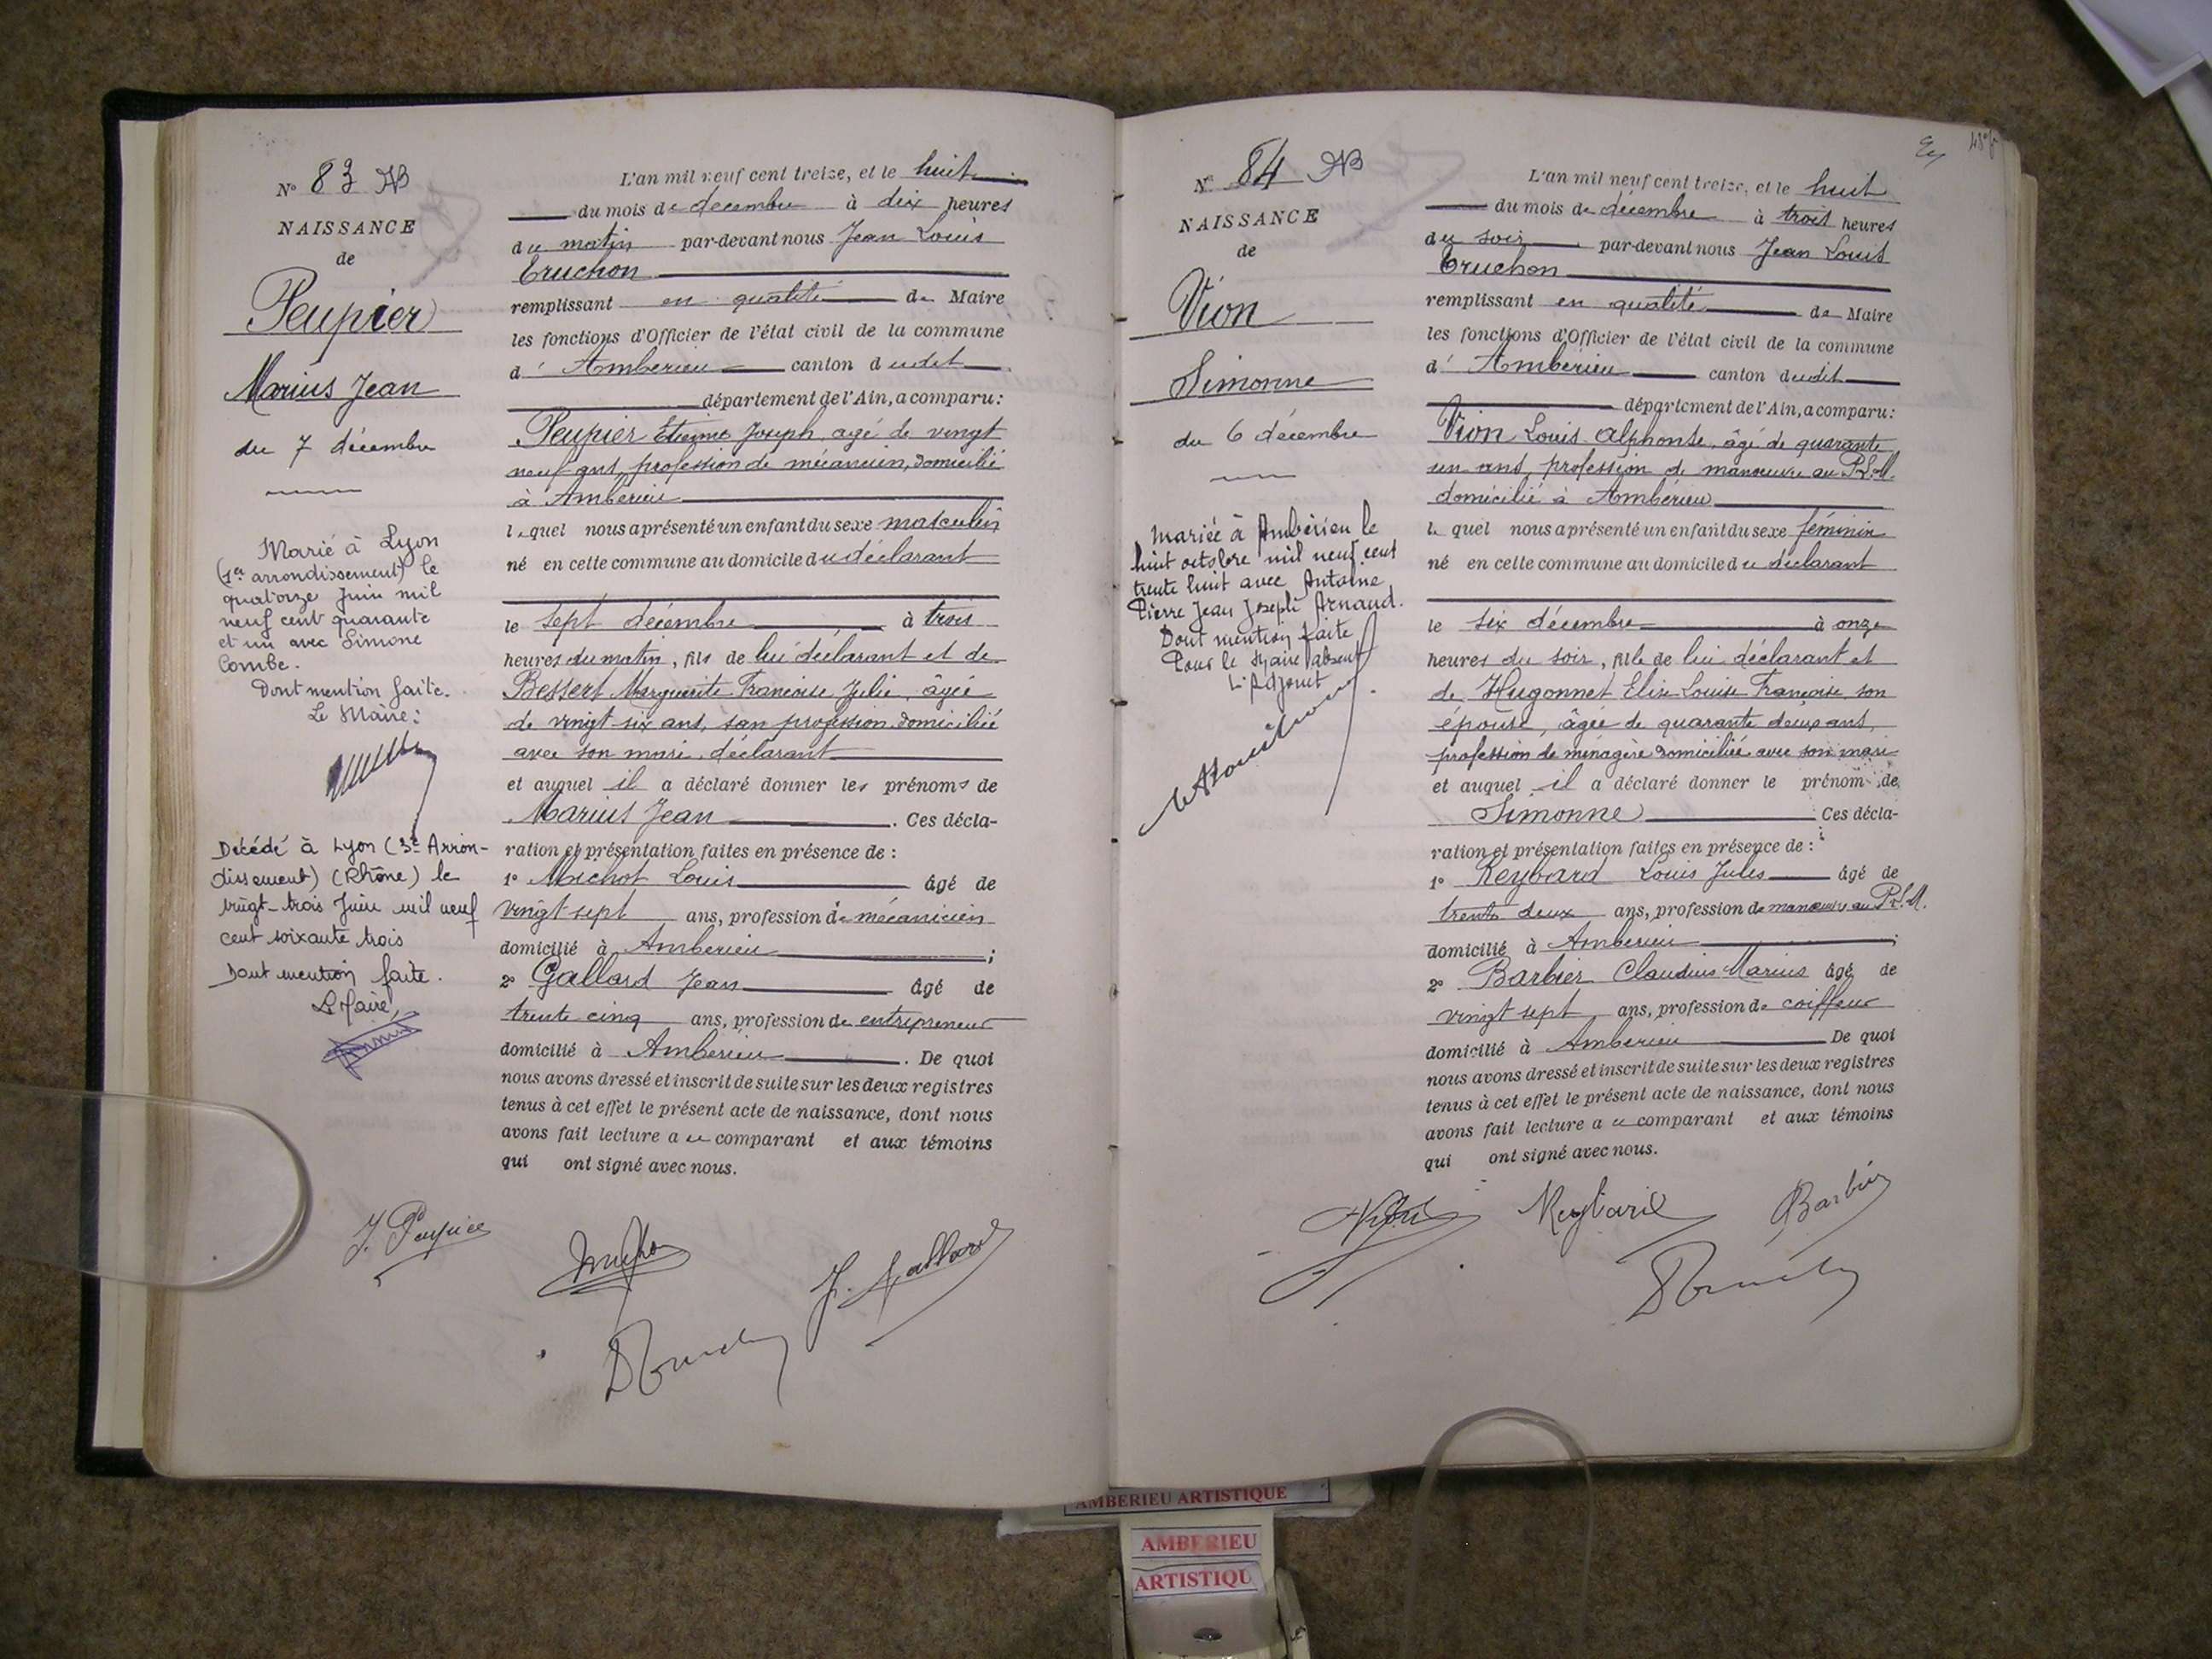 N° 83 AB
NAISSANCE
de
Peupier
Marius Jean
du 7 décembre
Marié à Lyon
(1er arrondissement) le
quatorze Juin mil
neuf cent quarante
et un avec Simone
Combe.
Dont mention faite.
Le Maire:
Décédé à Lyon (3e Arron-
dissement) (Rhône) le
vingt-trois Juin mil neuf
cent soixante trois
Dont mention faite.
Le Maire,
L'an mil neuf cent treize, et le huit
du mois de décembre à dix heures
du matin par-devant nous Jean Louis
Truchon
remplissant en qualité de Maire
les fonctions d'Officier de l'état civil de la commune
d' Ambérieu canton dudit
département de l'Ain, a comparu:
Peupier Etienne Joseph, agé de vingt
neuf ans, profession de mécanicien, domicilié
à Ambérieu
lequel nous a présenté un enfant du sexe masculin
né en cette commune au domicile du déclarant
le sept décembre à trois
heures du matin, fils de lui déclarant et de
Bessert Marguerite Françoise Julie, âgée
de vingt six ans, san profession domiciliée
avec son mari, déclarant
et auquel il a déclaré donner les prénoms de
Marius Jean . Ces décla-
ration et présentation faites en présence de :
1° Michot Louis âgé de
vingt sept ans, profession de mécanicien
domicilié à Amberieu ;
2° Gallard Jean âgé de
trente cinq ans, profession de entrepreneur
domicilié à Ambérieu . De quoi
nous avons dressé et inscrit de suite sur les deux registres
tenus à cet effet le présent acte de naissance, dont nous
avons fait lecture au comparant et aux témoins
qui ont signé avec nous.
J. Peupier
J. Gallard
N° 84 AB
NAISSANCE
de
Vion
Simonne
du 6 décembre
Mariée à Ambérieu le
huit octobre mil neuf cent
trente huit avec Antoine
Pierre Jean Joseph Arnaud.
Dont mention faite
Pour le Maire absent
L'Adjoint
L'an mil neuf cent treize, et le huit
du mois de décembre à trois heures
du soir par-devant nous Jean Louis
Truchon
remplissant en qualité de Maire
les fonctions d'Officier de l'état civil de la commune
d' Ambérieu canton dudit
département de l'Ain, a comparu:
Vion Louis Alphonse, âgé de quarante
un ans, profession de manœuvre au P.L.M.
domicilié à Ambérieu
lequel nous a présenté un enfant du sexe féminin
né en cette commune au domicile du déclarant
le six décembre à onze
heures du soir, fille de lui déclarant et
de Hugonnet Elise Louise Françoise son
épouse, âgée de quarante deux ans,
profession de ménagère domiciliée avec son mari
et auquel il a déclaré donner le prénom de
Simonne Ces décla-
ration et présentation faites en présence de :
1° Reybard Louis Jules âgé de
trente deux ans, profession de manœuvre au P.L.M.
domicilié à Amberieu ;
2° Barbier Claudius Marius âgé de
vingt sept ans, profession de coiffeur
domicilié à Amberieu De quoi
nous avons dressé et inscrit de suite sur les deux registres
tenus à cet effet le présent acte de naissance, dont nous
avons fait lecture au comparant et aux témoins
qui ont signé avec nous.
Reybard
Barbier
AMBERIEU ARTISTIQUE
AMBERIEU
ARTISTIQU